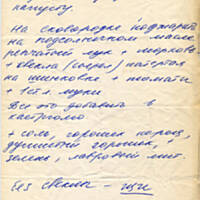 капусту.
На сковородке поджарить
на подсолнечном масле
репчатый лук + морковь
+ свекла (сырая) натёртая
на шинковке + томаты
+ 1 ст л. муки
Все это добавить в
кастрюлю
+ соль, горошек перец,
душистый горошек, +
зелень, лавровый лист.
Без свеклы - щи